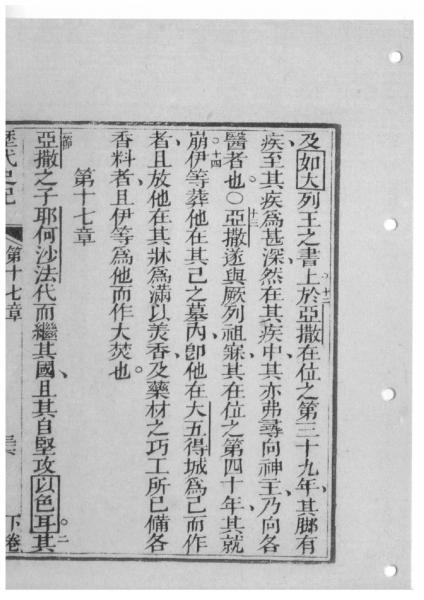 及如大列王之書上於十二亞撒在位之第三十九年、其腳有
疾、至其疾爲甚深、然在其疾中、其亦弗尋向神王、乃向各
醫者也。○十三亞撒遂與厥列祖寐、其在位之第四十年、其就
崩。十四伊等葬他在其己之墓內、卽他在大五得城爲己而作
者、且放他在其牀爲滿以美香、及藥材之巧工所已備各
香料者、且伊等爲他而作大焚也。
第十七章
節亞撒之子耶何沙法代而繼其國、且其自堅攻以色耳。二其
歷代史記 第十七章 下卷